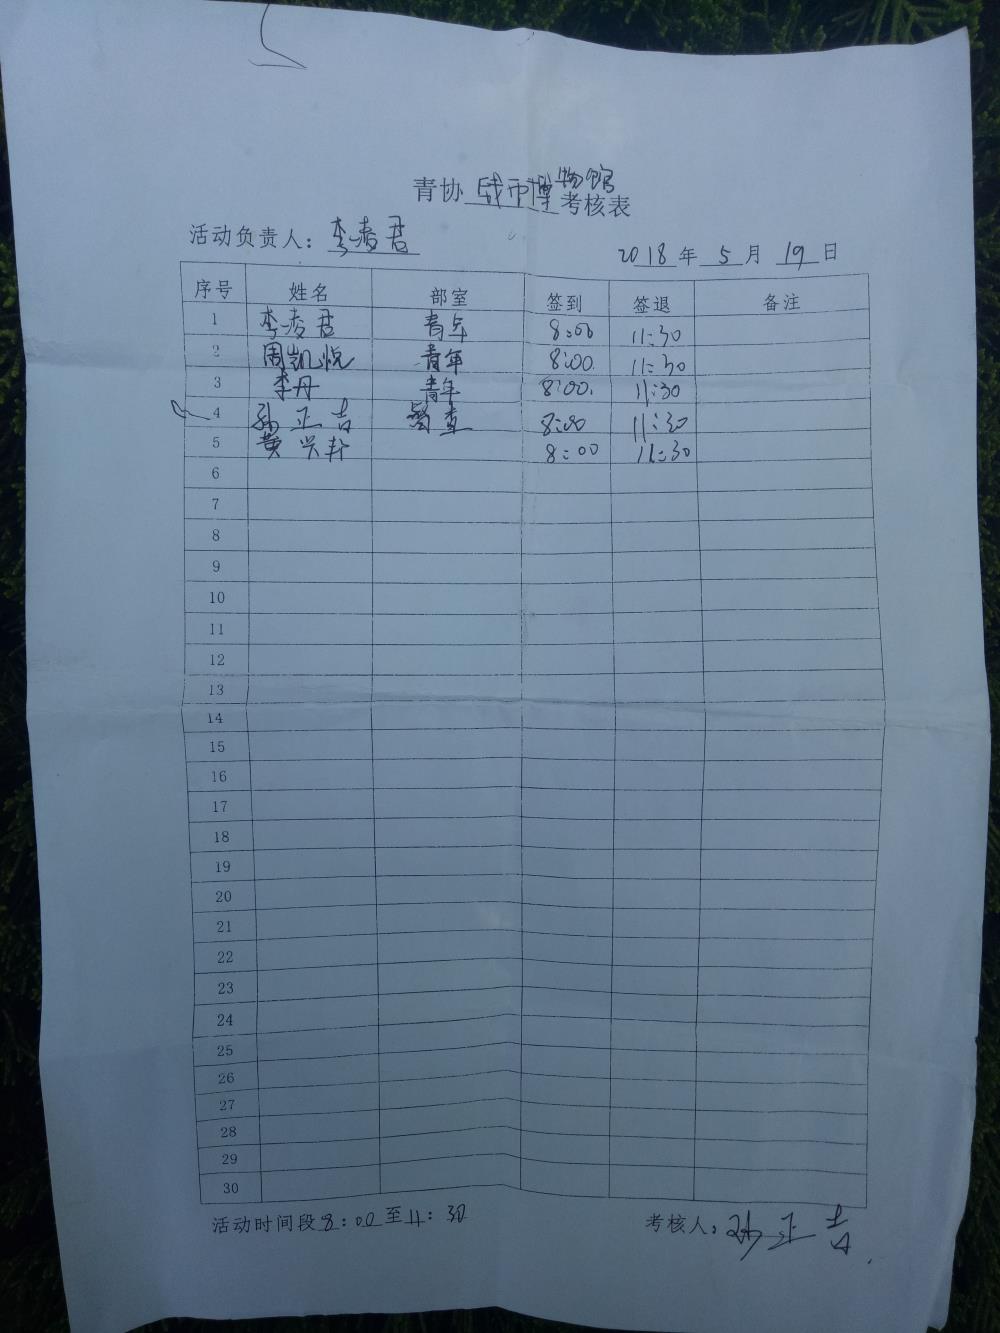 青协 钱币博物馆 考核表
活动负责人: 李凌君 2018 年 5 月 19 日
序号 姓名 部室 签到 签退 备注
1 李凌君 青年 8:00 11:30
2 周凯悦 青年 8:00 11:30
3 李丹 青年 8:00 11:30
4 孙正吉 督查 8:00 11:30
5 黄兴轩 8:00 11:30
6
7
8
9
10
11
12
13
14
15
16
17
18
19
20
21
22
23
24
25
26
27
28
29
30
活动时间段 8:00 至 11:30 考核人: 孙正吉